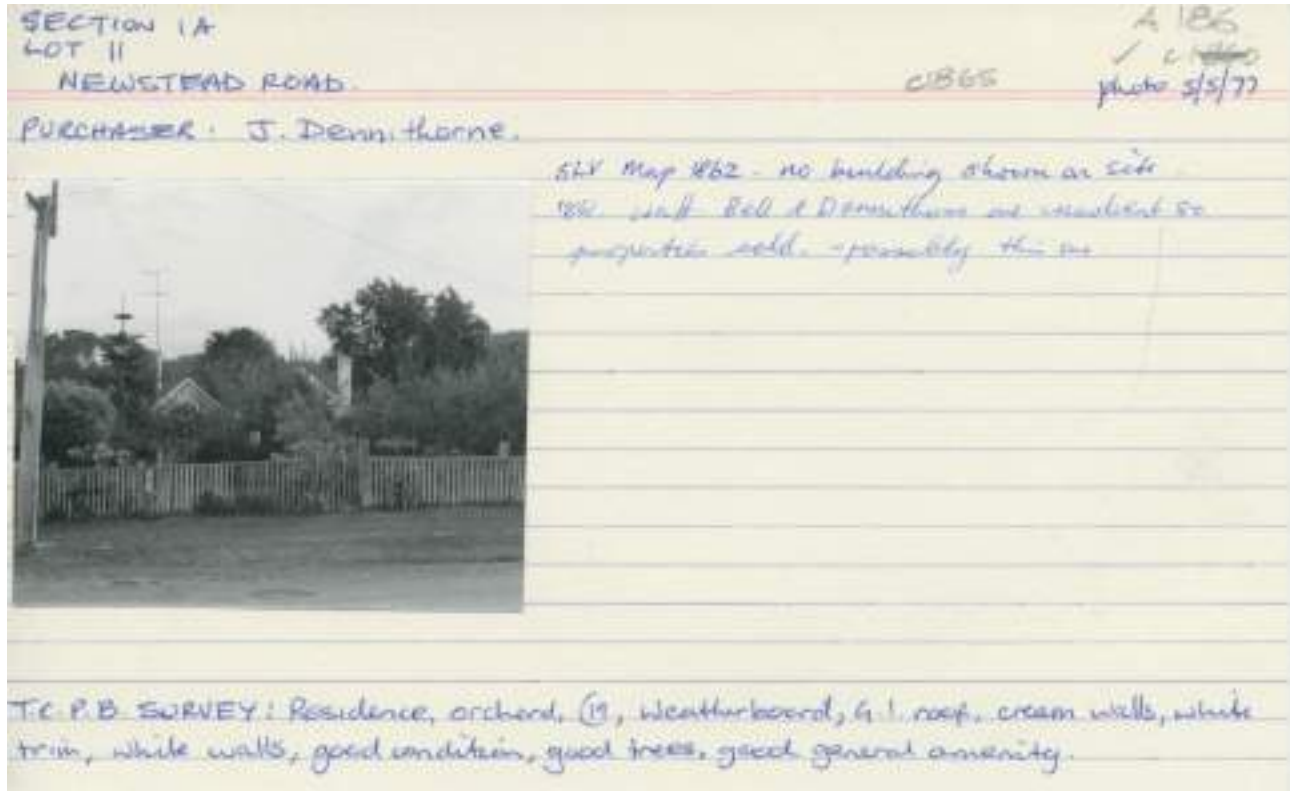 SECTION 1A
LOT 11
NEWSTEAD ROAD.
c1865
A 186
✓ c1860
photo 5/5/77
PURCHASER: J. Dennithorne.
SLV Map 1862 - no building shown on site
Bell & Dennithorne are insolvent so
properties sold. - possibly this one
T.C.P.B SURVEY: Residence, orchard, C19, Weatherboard, G.I. roof, cream walls, white
trim, white walls, good condition, good trees, good general amenity.